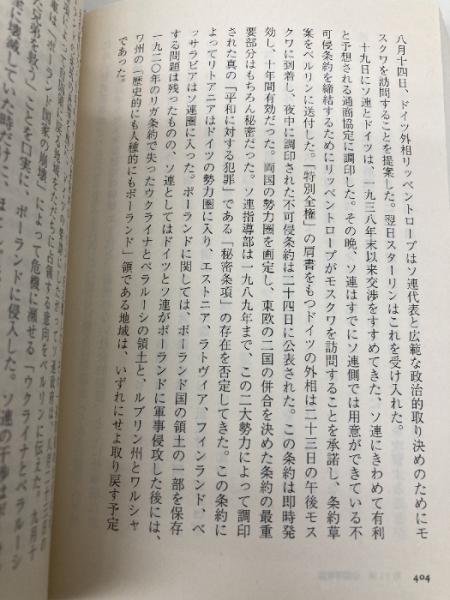 八月十四日、ドイツ外相リッベントロープはソ連代表と広範な政治的取り決めのためにモ
スクワを訪問することを提案した。翌日スターリンはこれを受け入れた。
十九日にソ連とドイツは、一九三八年末以来交渉をすすめてきた、ソ連にきわめて有利
と予想される通商協定に調印した。その晩、ソ連はすでにソ連側では用意ができている不
可侵条約を締結するためにリッベントロープがモスクワを訪問することを承諾し、条約草
案をベルリンに送付した。「特別全権」の肩書をもつドイツの外相は二十三日の午後モス
クワに到着し、夜中に調印された不可侵条約は二十四日に公表された。この条約は即時発
効し、十年間有効だった。両国の勢力圏を画定し、東欧の二国の併合を決めた条約の最重
要部分はもちろん秘密だった。ソ連指導部は一九八九年まで、この二大勢力によって調印
された真の「平和に対する犯罪」である「秘密条項」の存在を否定してきた。この条約に
よってリトアニアはドイツの勢力圏に入り、エストニア、ラトヴィア、フィンランド、ベ
ッサラビアはソ連圏に入った。ポーランドに関しては、ポーランド国の領土の一部を保存
する問題は残ったものの、ソ連としてはドイツとソ連がポーランドに軍事侵攻した後には、
一九二〇年のリガ条約で失ったウクライナとベラルーシの領土と、ルブリン州とワルシャ
ワ州の「歴史的にも人種的にもポーランド」領である地域は、いずれにせよ取り戻す予定
であった。
404